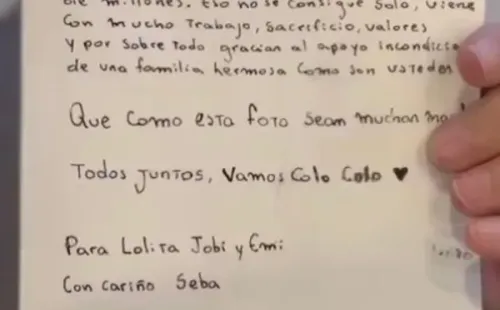 de millones. Eso no se consigue solo, viene
Con mucho Trabajo, Sacrificio, valores
y por sobre todo gracian al apoyo incondicio
de una familia hermosa como son ustedes
Que como esta foto sean muchan
Todos Juntos, Vamos Colo Colo ♥
Para Lolita Jobi y Emi
Con cariño Seba